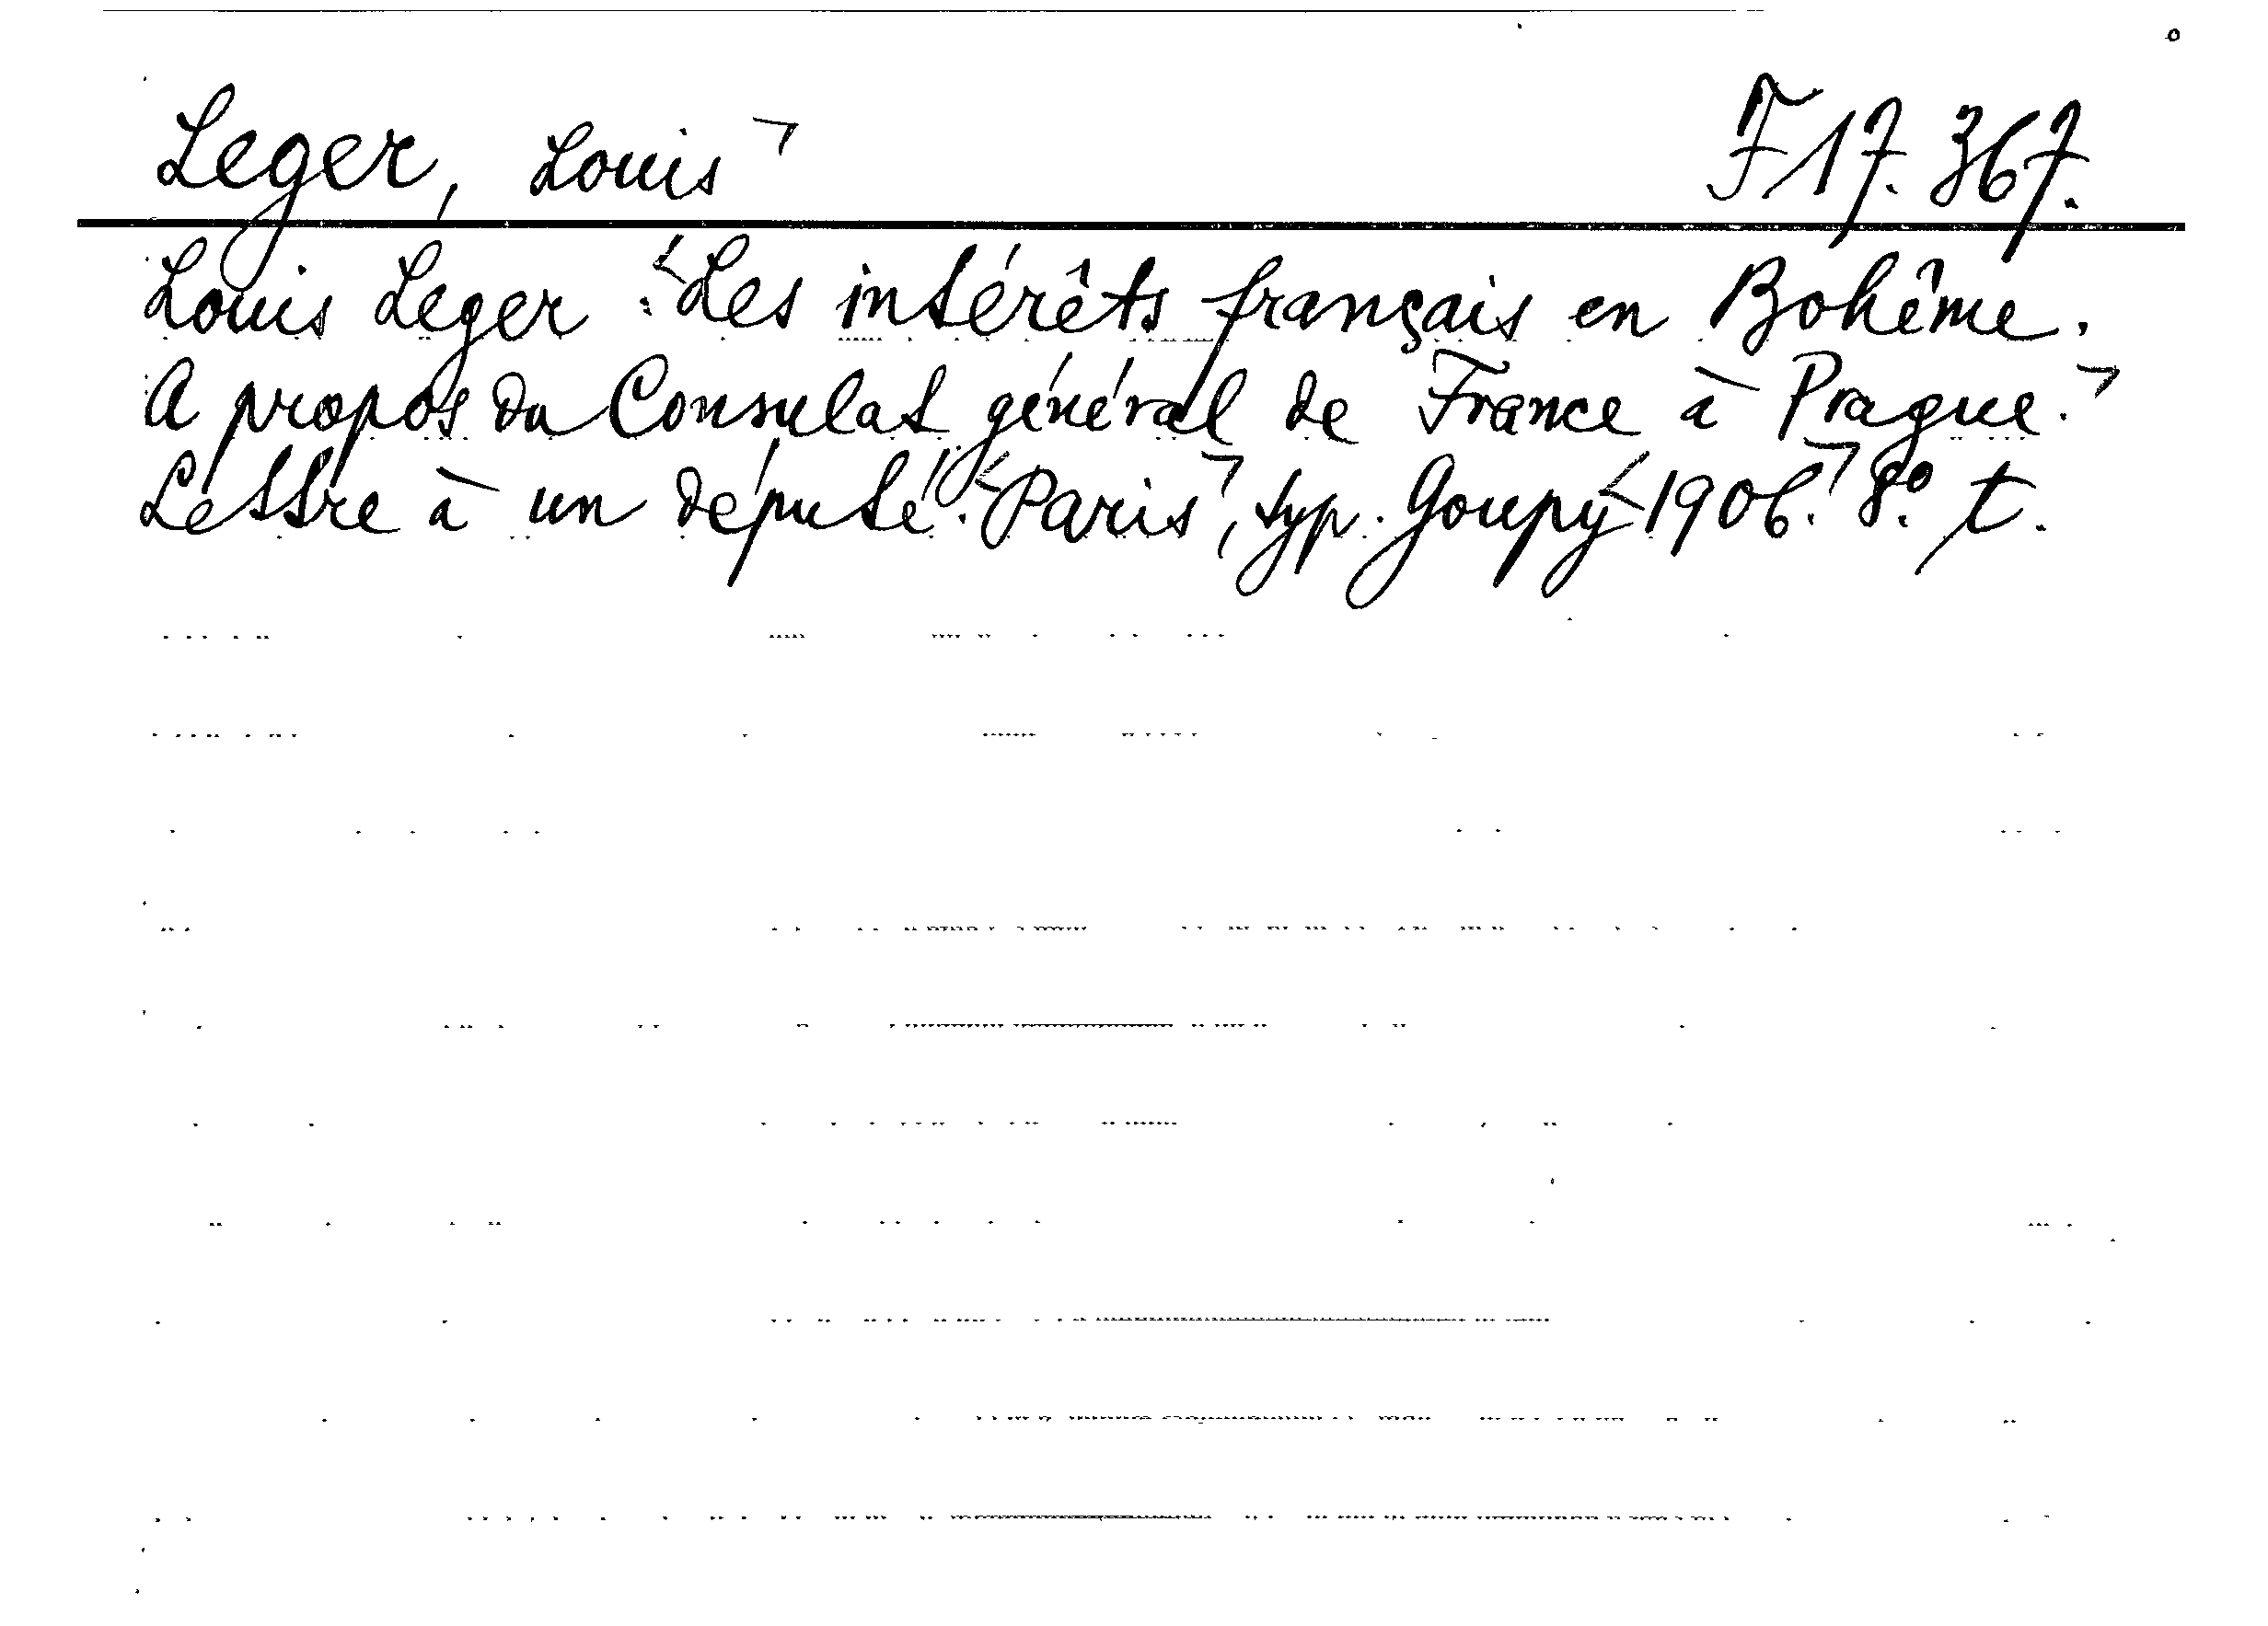 Leger, Louis ㄱ F 17.367.
Louis Leger: <Les intérêts français en Bohême.
A propos du Consulat général de France à Prague.ㄱ
Lettre à un député. <Parisㄱ, typ. Goupy <1906.ㄱ 8°. t.